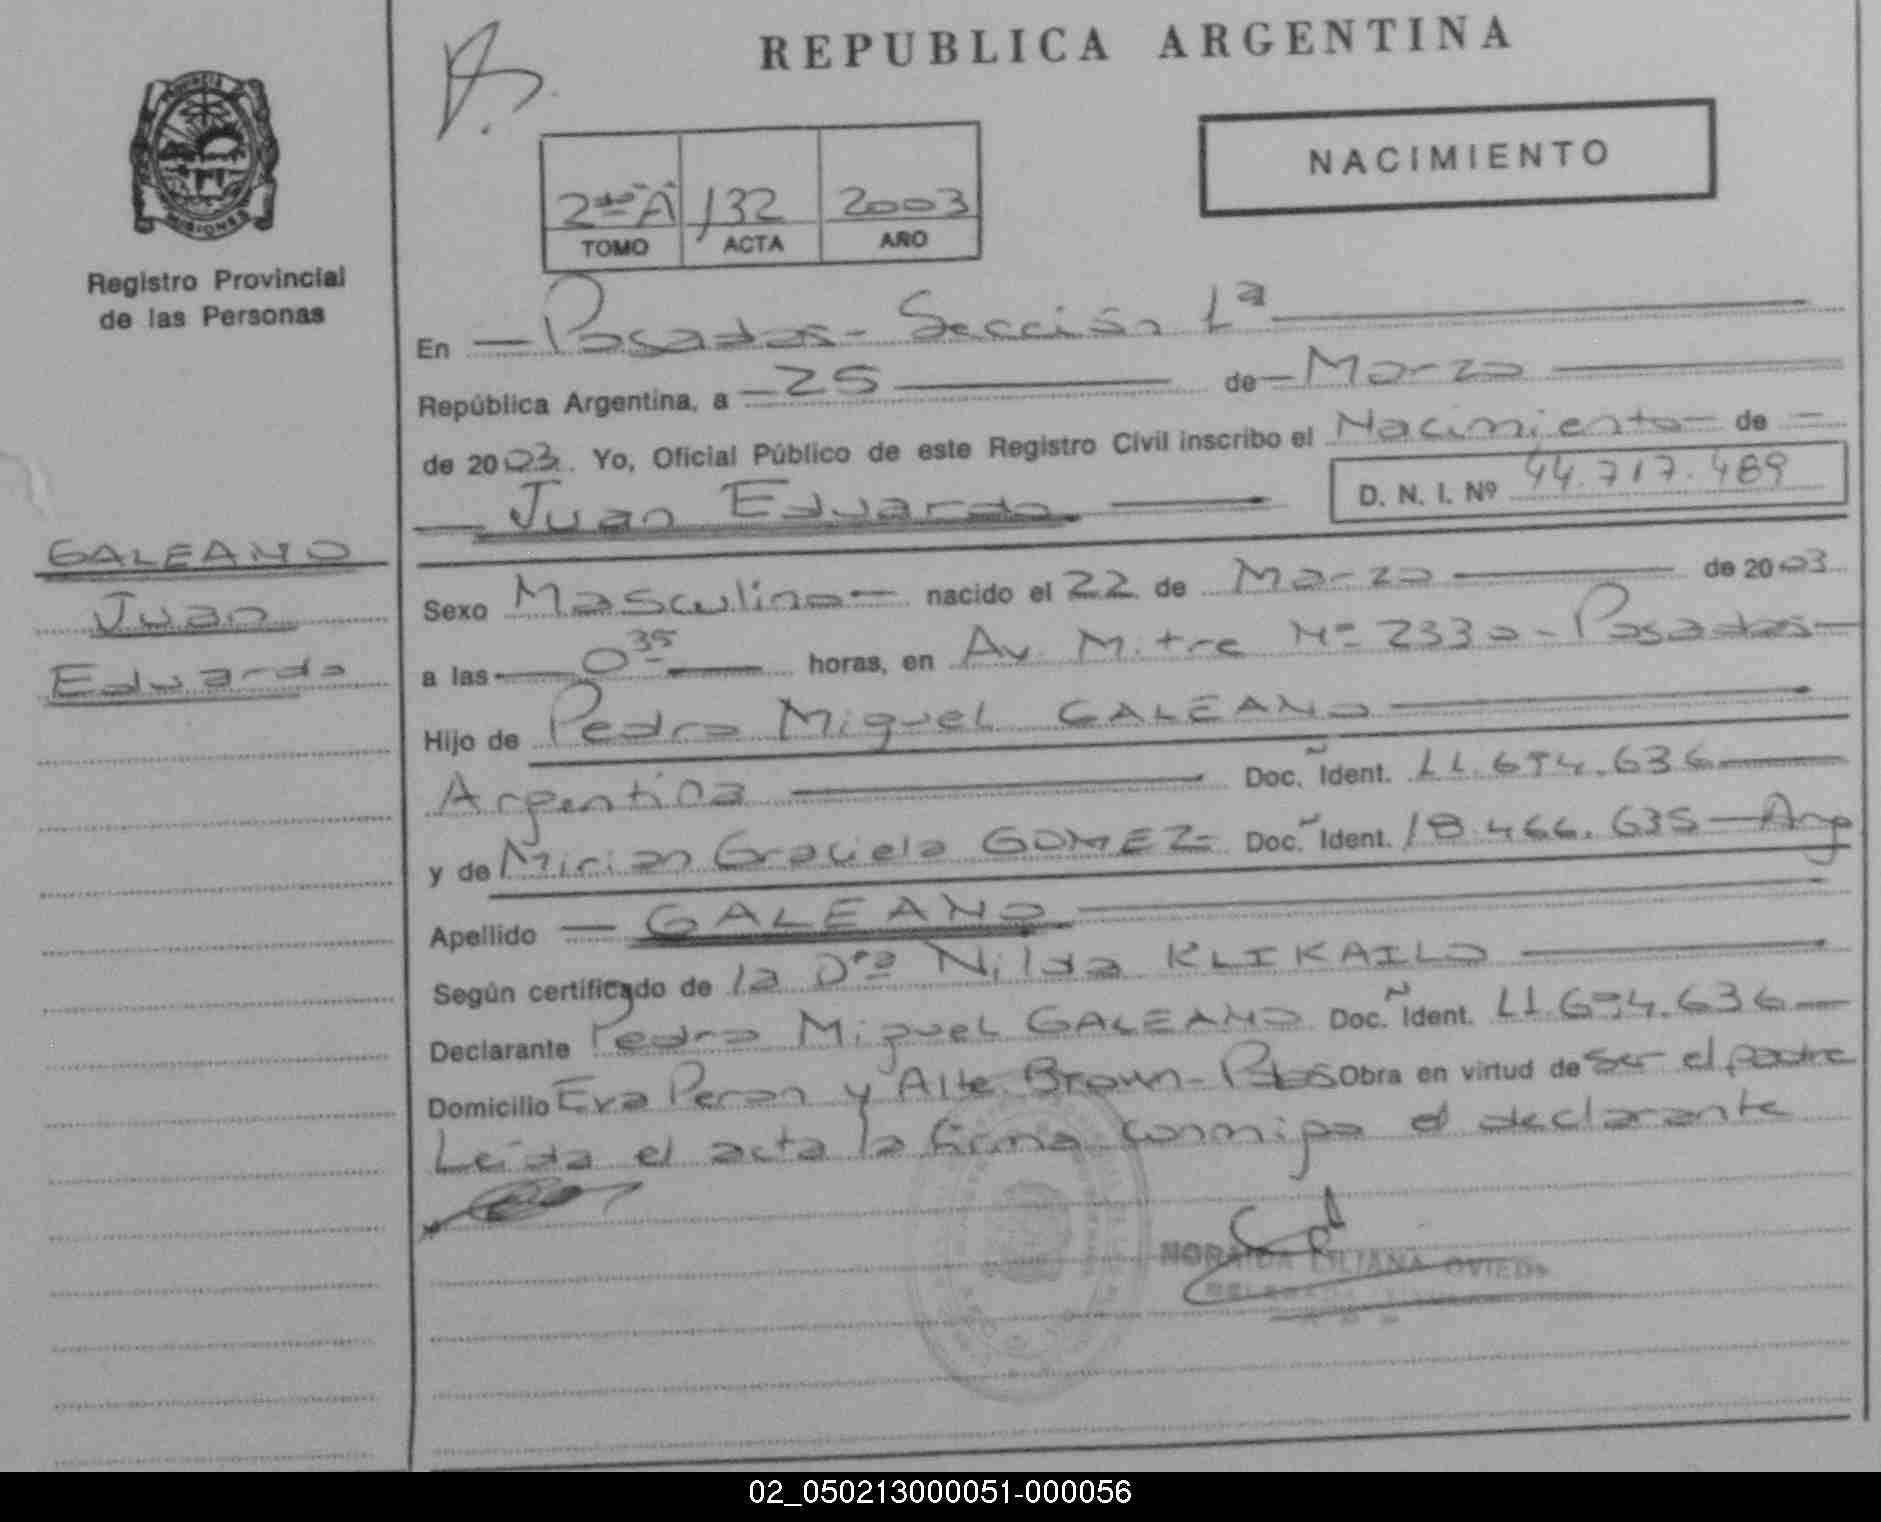 REPUBLICA ARGENTINA
PROVINCIA
MISIONES
Registro Provincial
de las Personas
2do "A" 132 2003
TOMO ACTA AÑO
NACIMIENTO
En Posadas - Sección 1ª
República Argentina, a 25 de Marzo
de 2003. Yo, Oficial Público de este Registro Civil inscribo el Nacimiento de
Juan Eduardo D. N. I. Nº 44.717.489
GALEANO
Juan
Eduardo
Sexo Masculino nacido el 22 de Marzo de 2003
a las 0 35 horas, en Av. Mitre Nº 2330 - Posadas
Hijo de Pedro Miguel GALEANO
Argentina Doc. Ident. 11.694.636
y de Mirian Graciela GOMEZ Doc. Ident. 18.466.635 - Arg
Apellido GALEANO
Según certificado de la Dra Nilda KLIKAILO
Declarante Pedro Miguel GALEANO Doc. Ident. 11.694.636
Domicilio Eva Peron y Alte. Brown - Pdas Obra en virtud de ser el padre
Leida el acta la firma conmigo el declarante
NORAIDA LILIANA OVIEDO
02_050213000051-000056